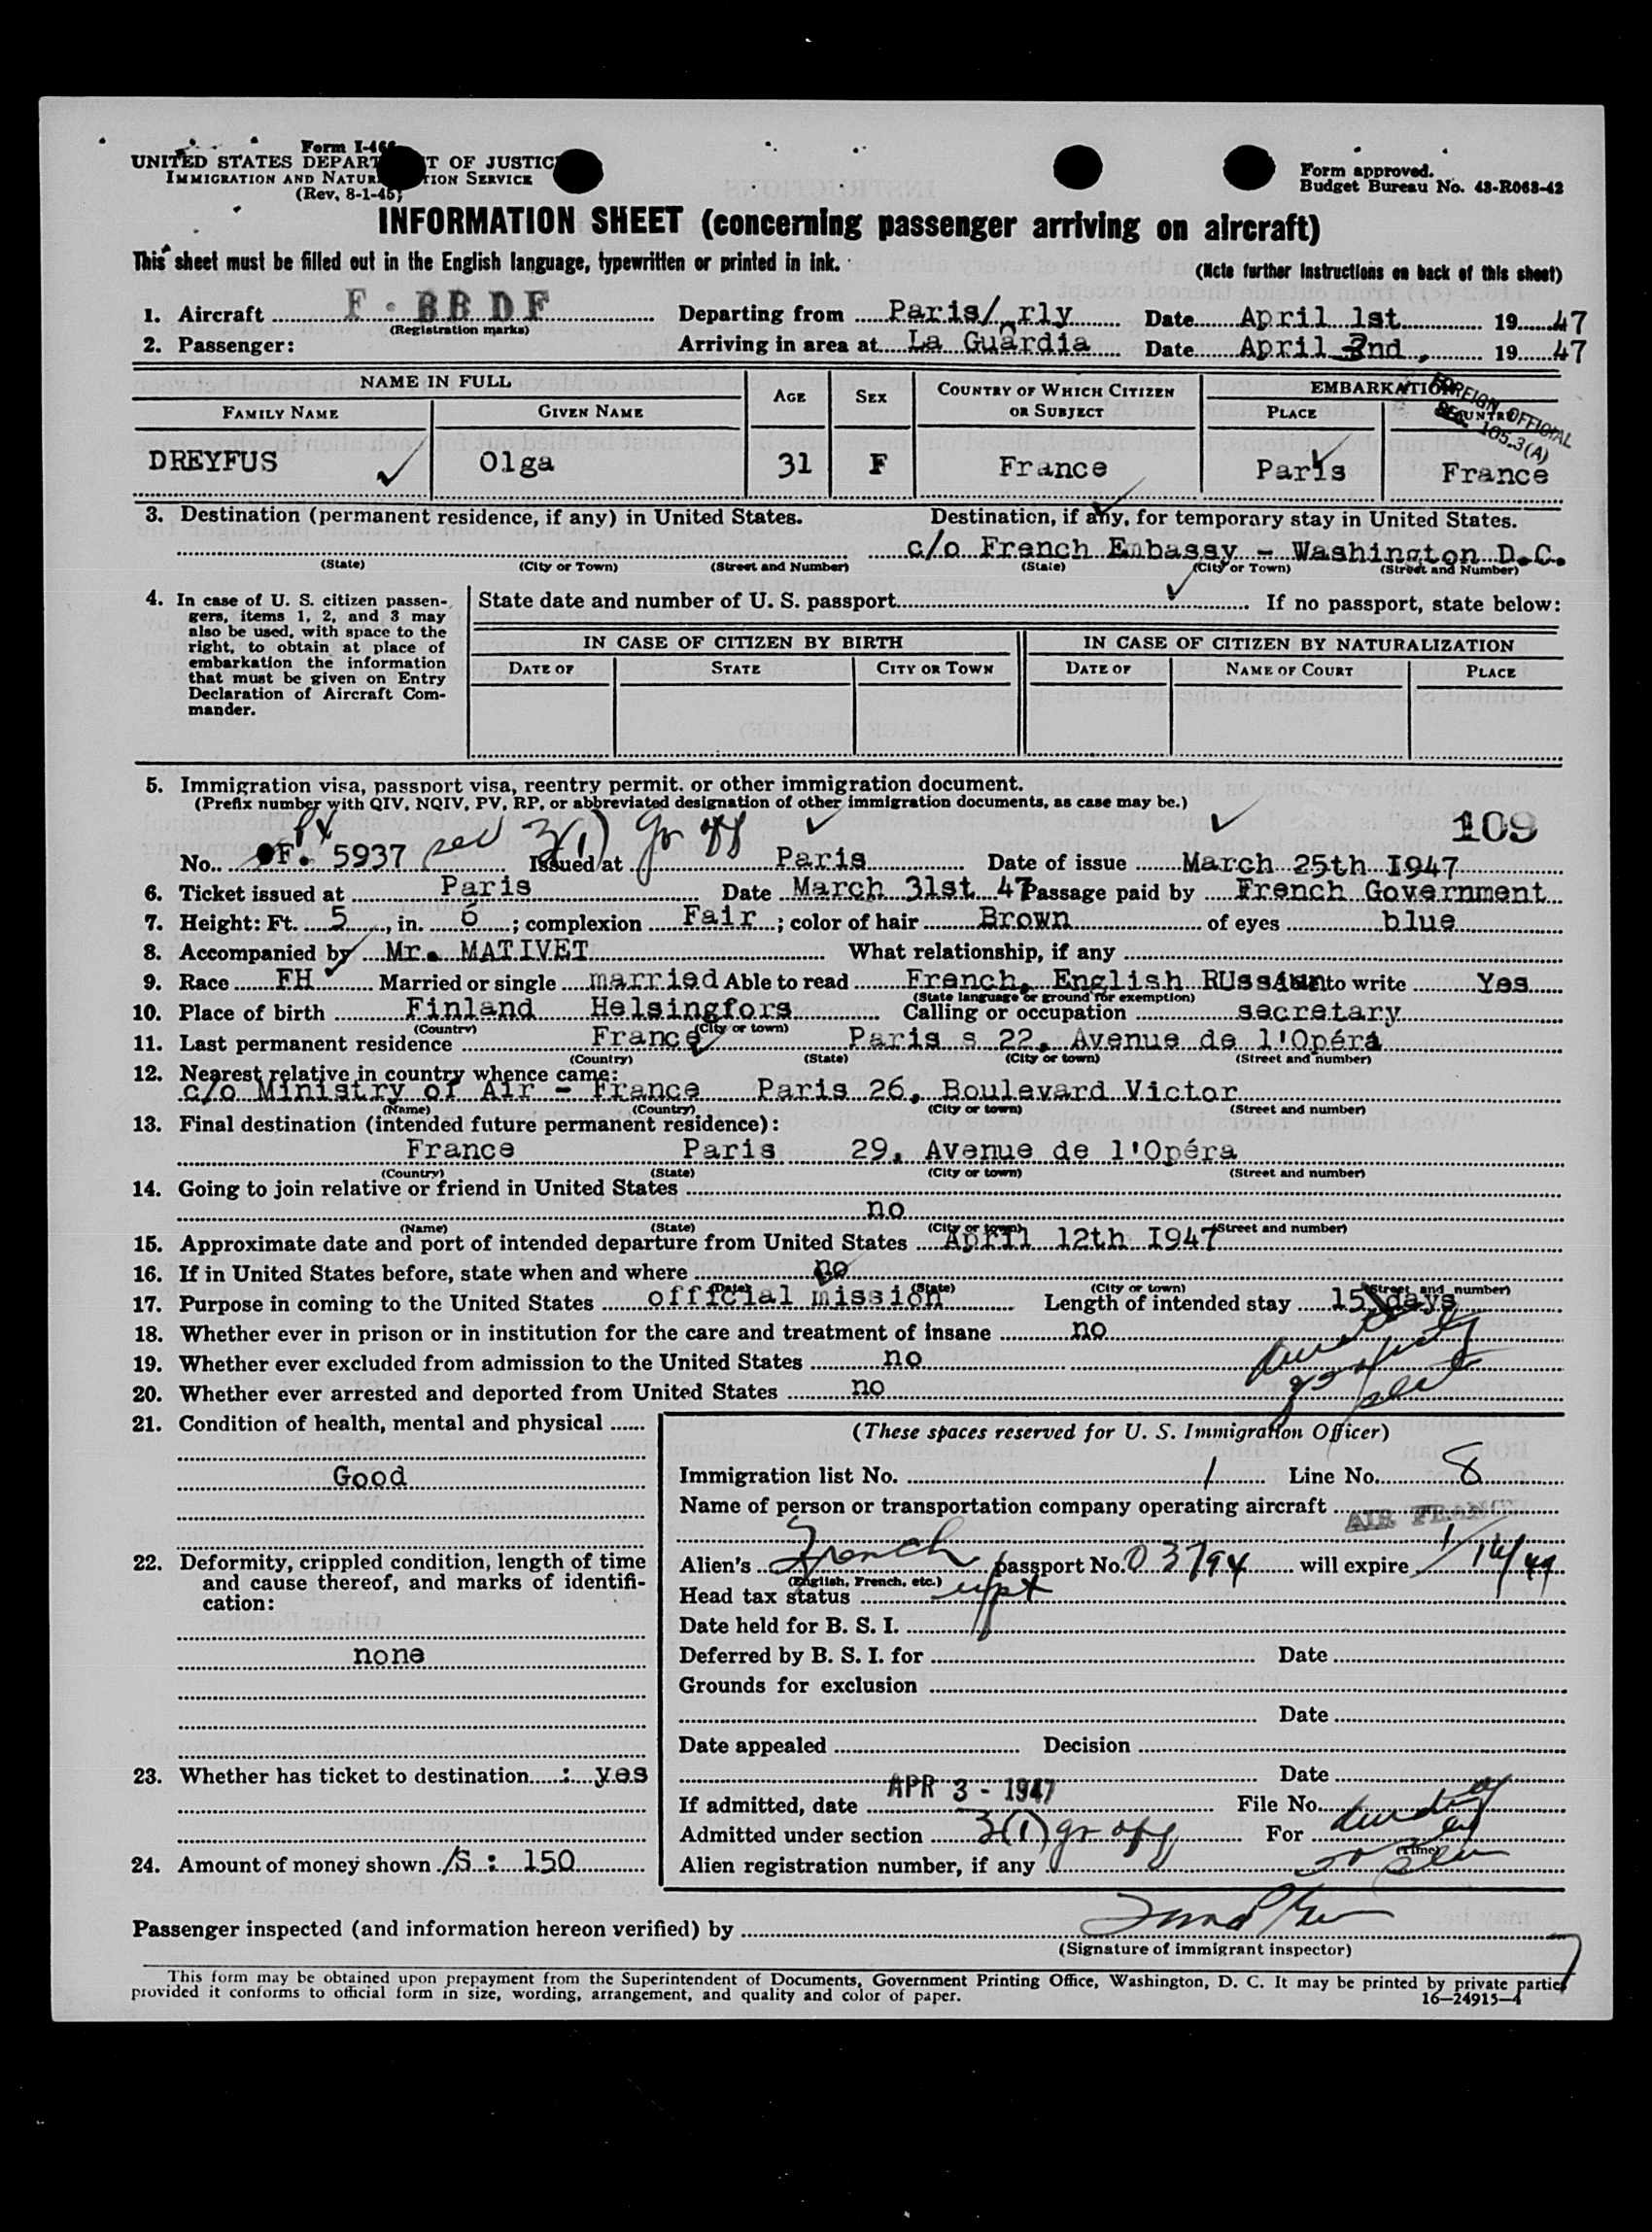 Form I-466
UNITED STATES DEPARTMENT OF JUSTICE
IMMIGRATION AND NATURALIZATION SERVICE
(Rev. 8-1-45)
Form approved.
Budget Bureau No. 43-R063-42
INFORMATION SHEET (concerning passenger arriving on aircraft)
This sheet must be filled out in the English language, typewritten or printed in ink.
(Note further instructions on back of this sheet)
1. Aircraft F - BBDF Departing from Paris/ rly Date April 1st 1947
(Registration marks)
2. Passenger: Arriving in area at La Guardia Date April 2nd, 1947
NAME IN FULL AGE SEX COUNTRY OF WHICH CITIZEN OR SUBJECT EMBARKATION
FAMILY NAME GIVEN NAME PLACE COUNTRY
FOREIGN OFFICIAL
SEC. 105.3(A)
DREYFUS Olga 31 F France Paris France
3. Destination (permanent residence, if any) in United States. Destination, if any, for temporary stay in United States.
c/o French Embassy - Washington D.C.
(State) (City or Town) (Street and Number) (State) (City or Town) (Street and Number)
4. In case of U. S. citizen passengers, items 1, 2, and 3 may also be used, with space to the right, to obtain at place of embarkation the information that must be given on Entry Declaration of Aircraft Commander.
State date and number of U. S. passport If no passport, state below:
IN CASE OF CITIZEN BY BIRTH IN CASE OF CITIZEN BY NATURALIZATION
DATE OF STATE CITY OR TOWN DATE OF NAME OF COURT PLACE
5. Immigration visa, passport visa, reentry permit, or other immigration document.
(Prefix number with QIV, NQIV, PV, RP, or abbreviated designation of other immigration documents, as case may be.)
109
PV 3(1) gv off
No. F. 5937 Issued at Paris Date of issue March 25th I947
6. Ticket issued at Paris Date March 31st 47 Passage paid by French Government
7. Height: Ft. 5, in. 6; complexion Fair; color of hair Brown of eyes blue
8. Accompanied by Mr. MATIVET What relationship, if any
9. Race FH Married or single married Able to read French, English RUssian Able to write Yes
(State language or ground for exemption)
10. Place of birth Finland Helsingfors Calling or occupation secretary
(Country) (City or town)
11. Last permanent residence France Paris s 22, Avenue de l'Opéra
(Country) (State) (City or town) (Street and number)
12. Nearest relative in country whence came:
c/o Ministry of Air - France Paris 26, Boulevard Victor
(Name) (Country) (City or town) (Street and number)
13. Final destination (intended future permanent residence):
France Paris 29, Avenue de l'Opéra
(Country) (State) (City or town) (Street and number)
14. Going to join relative or friend in United States
no
(Name) (State) (City or town) (Street and number)
15. Approximate date and port of intended departure from United States April 12th I947
16. If in United States before, state when and where no
(Date) (State) (City or town) (Street and number)
17. Purpose in coming to the United States official mission Length of intended stay 15 days
18. Whether ever in prison or in institution for the care and treatment of insane no
19. Whether ever excluded from admission to the United States no
20. Whether ever arrested and deported from United States no
21. Condition of health, mental and physical
Good
22. Deformity, crippled condition, length of time and cause thereof, and marks of identification:
none
23. Whether has ticket to destination : yes
24. Amount of money shown /S : 150
(These spaces reserved for U. S. Immigration Officer)
Immigration list No. 1 Line No. 8
Name of person or transportation company operating aircraft AIR FRANCE
Alien's French passport No. 03794 will expire 1/14/49
(English, French, etc.)
Head tax status
Date held for B. S. I.
Deferred by B. S. I. for Date
Grounds for exclusion
Date
Date appealed Decision
Date
If admitted, date APR 3 - 1947 File No.
Admitted under section 3(1) gv off For
(Time)
Alien registration number, if any
Passenger inspected (and information hereon verified) by
(Signature of immigrant inspector)
This form may be obtained upon prepayment from the Superintendent of Documents, Government Printing Office, Washington, D. C. It may be printed by private parties
provided it conforms to official form in size, wording, arrangement, and quality and color of paper.
16—24915-4